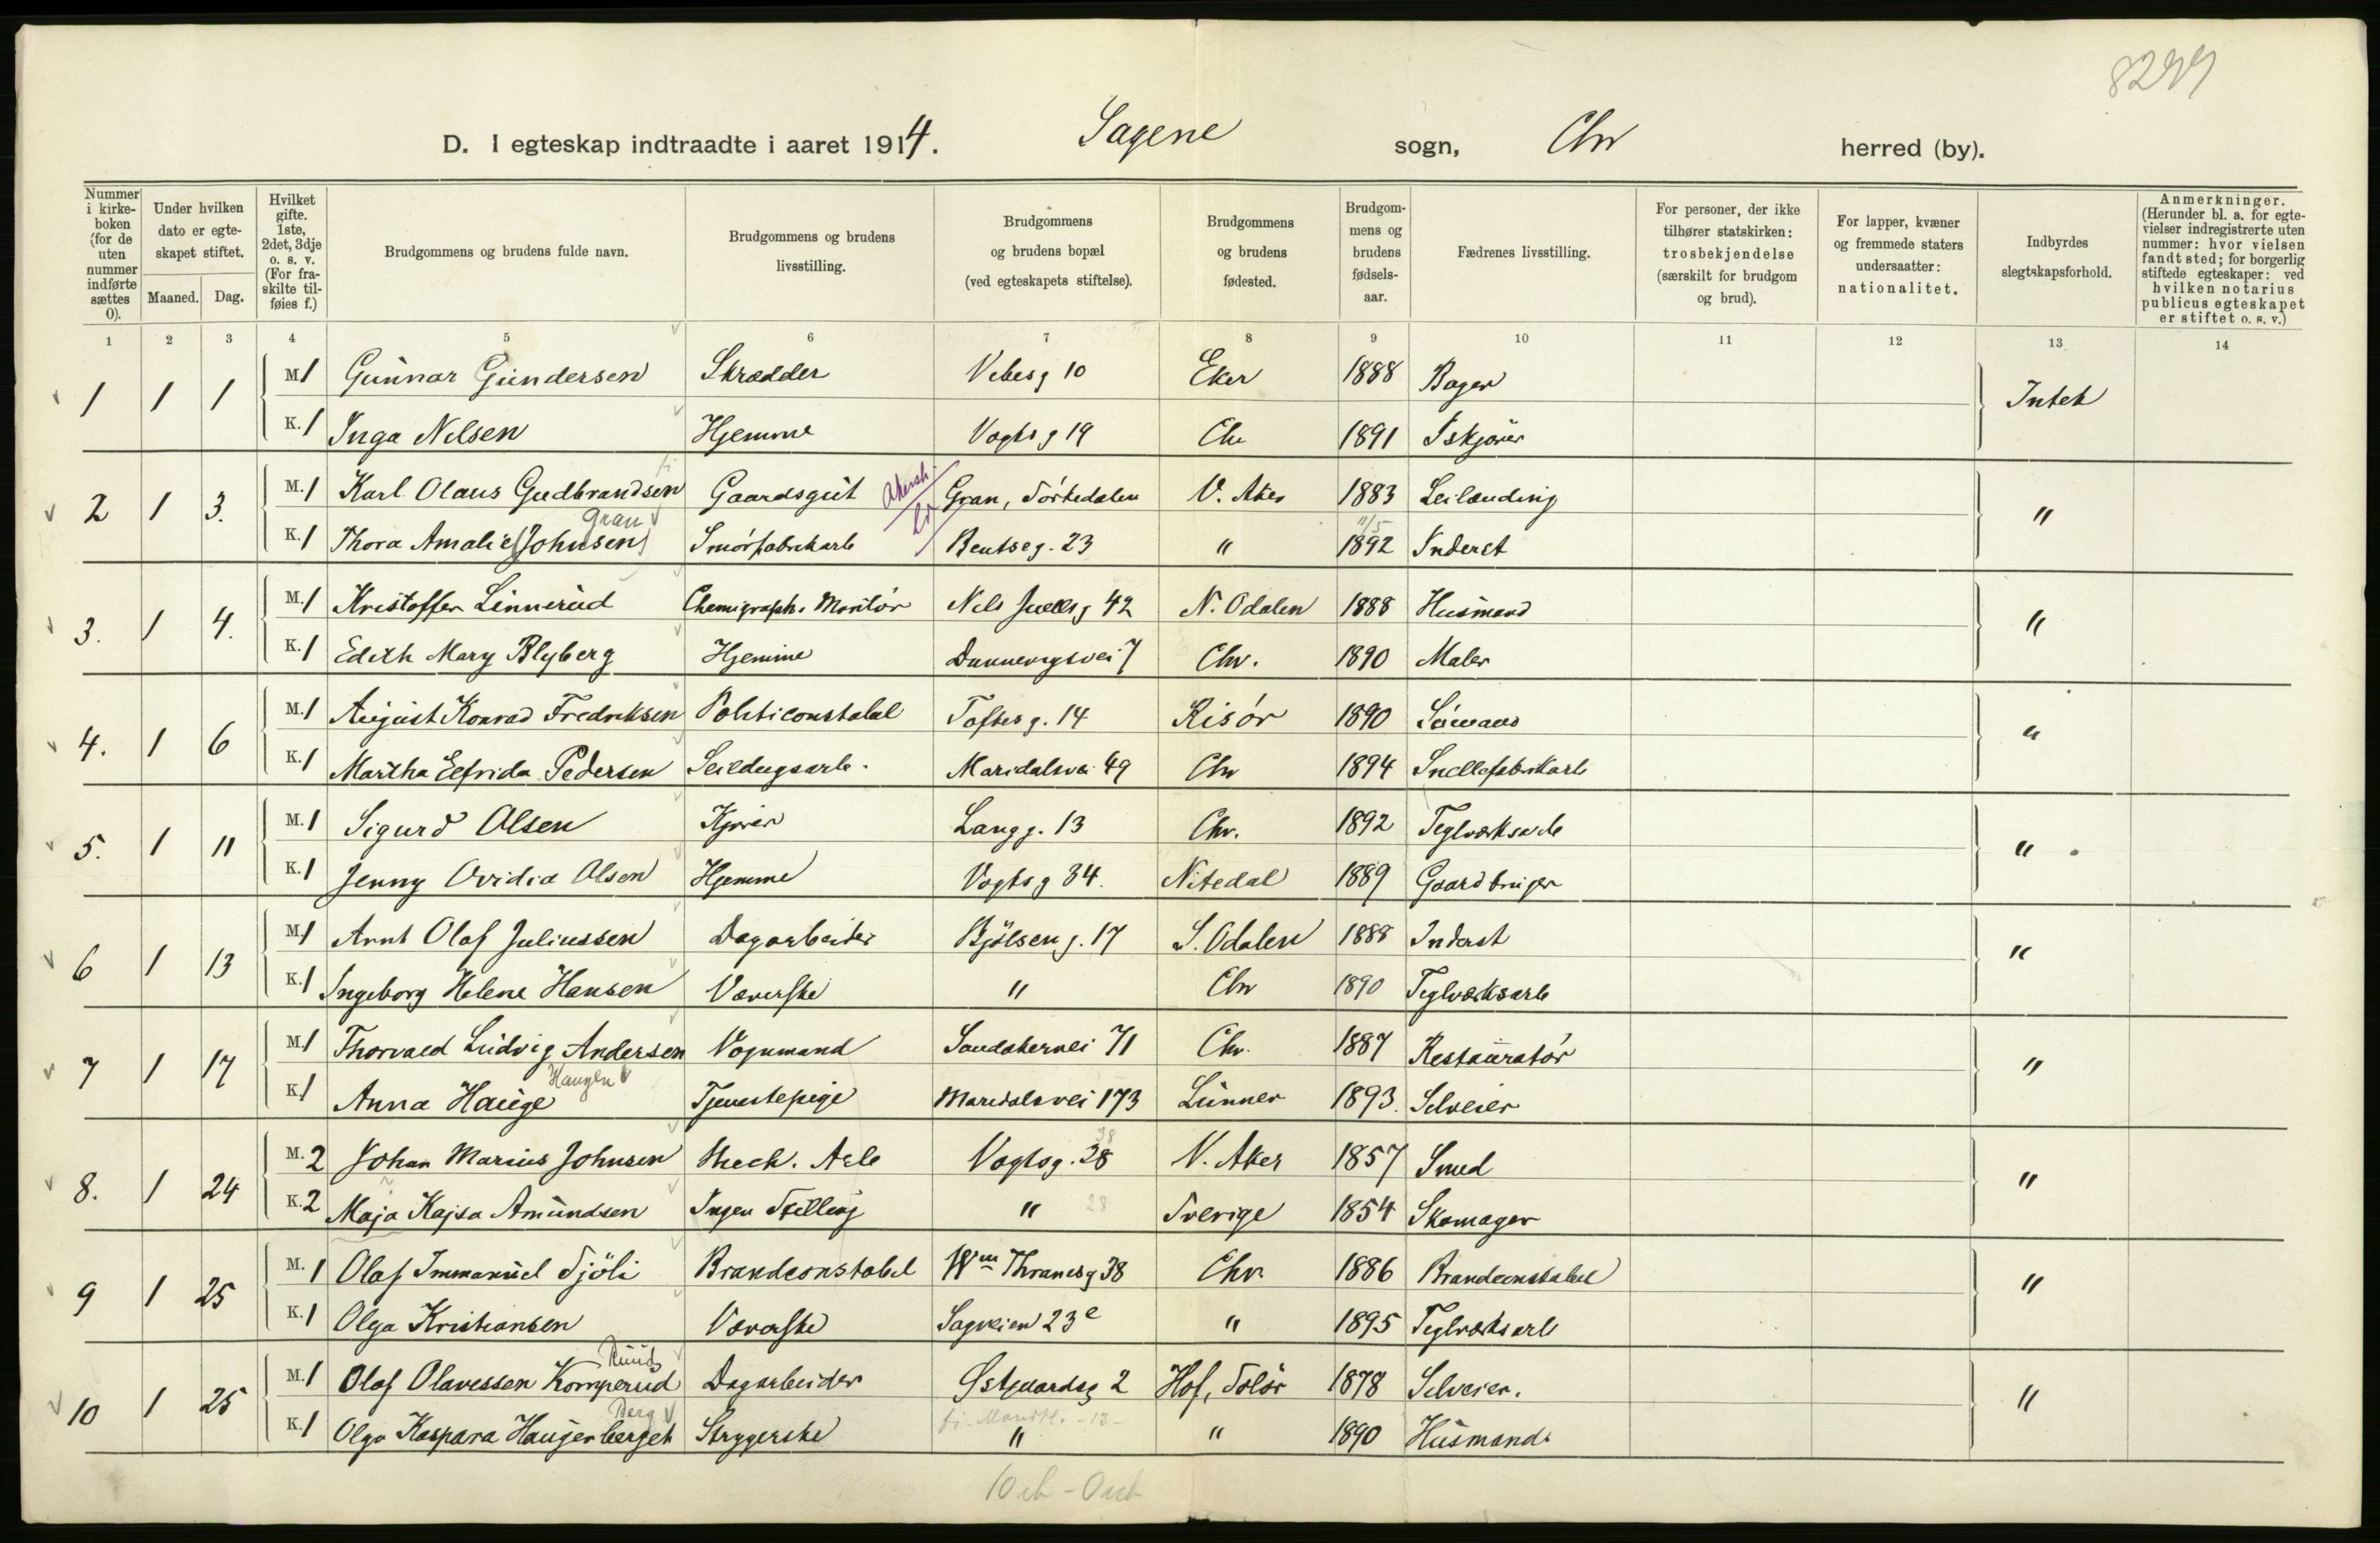 D. I egteskap indtraadte i aaret 1914. Sagene sogn, Chr herred (by).
Nummer i kirkeboken (for de uten nummer indførte sættes 0).
Under hvilken dato er egteskapet stiftet.
Maaned. Dag.
Hvilket gifte. 1ste, 2det, 3dje o. s. v. (For fraskilte tilføies f.)
Brudgommens og brudens fulde navn.
Brudgommens og brudens livsstilling.
Brudgommens og brudens bopæl (ved egteskapets stiftelse).
Brudgommens og brudens fødested.
Brudgommens og brudens fødselsaar.
Fædrenes livsstilling.
For personer, der ikke tilhører statskirken: trosbekjendelse (særskilt for brudgom og brud).
For lapper, kvæner og fremmede staters undersaatter: nationalitet.
Indbyrdes slegtskapsforhold.
Anmerkninger. (Herunder bl. a. for egtevielser indregistrerte uten nummer: hvor vielsen fandt sted; for borgerlig stiftede egteskaper: ved hvilken notarius publicus egteskapet er stiftet o. s. v.)
1 2 3 4 5 6 7 8 9 10 11 12 13 14
1 1 1 M 1 Gunnar Gundersen Skrædder Vibesg 10 Eker 1888 Bager Intet
K. 1 Inga Nilsen Hjemme Vogtsg 19 Chr 1891 Iskjører
2 1 3. M. 1 Karl Olaus Gudbrandsen Gaardsgut Akersh. Gran, Sørkedalen V. Aker 1883 Leilænding "
Gran 11/5
K. 1 Thora Amalie (Johnsen) Smørfabrikarb Bentseg. 23 " 1892 Inderst
3. 1 4. M. 1 Kristoffer Linnerud Chemigraph. Montør Nils Juelsg 42 N. Odalen 1888 Husmand "
K. 1 Edith Mary Blyberg Hjemme Dannevigsvei 7 Chr. 1890 Maler
4. 1 6 M. 1 August Konrad Fredriksen Politiconstabel Toftesg. 14 Risør 1890 Sømand "
K. 1 Martha Elfrida Pedersen Seildugsarb. Maridalsvei 49 Chr 1894 Snellefabrikarb
5. 1 11 M. 1 Sigurd Olsen Kjører Langg. 13 Chr. 1892 Teglværksarb "
K. 1 Jenny Ovidia Olsen Hjemme Vogtsg 34. Nitedal 1889 Gaardbruger
6 1 13 M 1 Arnt Olaf Juliussen Dagarbeider Bjølseng. 17 S. Odalen 1888 Inderst "
K. 1 Ingeborg Helene Hansen Væverske " Chr 1890 Teglværksarb
7 1 17 M 1 Thorvald Ludvig Andersen Vognmand Sandakervei 71 Chr. 1887 Restauratør "
Haugen
K 1 Anna Hauge Tjenestepige Maridalsvei 173 Lunner 1893. Selveier
38
8. 1 24 M. 2 Johan Marius Johnsen Mech. Arb Vogtsg. 28 V. Aker 1857 Smed "
K. 2 Maja Kajsa Amundsen Ingen Stilling " 28 Sverige 1854 Skomager
9 1 25 M. 1 Olaf Immanuel Sjöli Brandconstabel Wm Thranesg 38 Chr. 1886 Brandconstabel "
K. 1 Olga Kristiansen Væverske Sagveien 23 e " 1895 Teglværksarb
Ruud
10 1 25 M. 1 Olaf Olavessen Komperud Dagarbeider Østgaardsg 2 Hof, Solør 1878 Selveier. "
Berg
K. 1 Olga Kaspara Haugerberget Strygerske " " 1890 Husmand